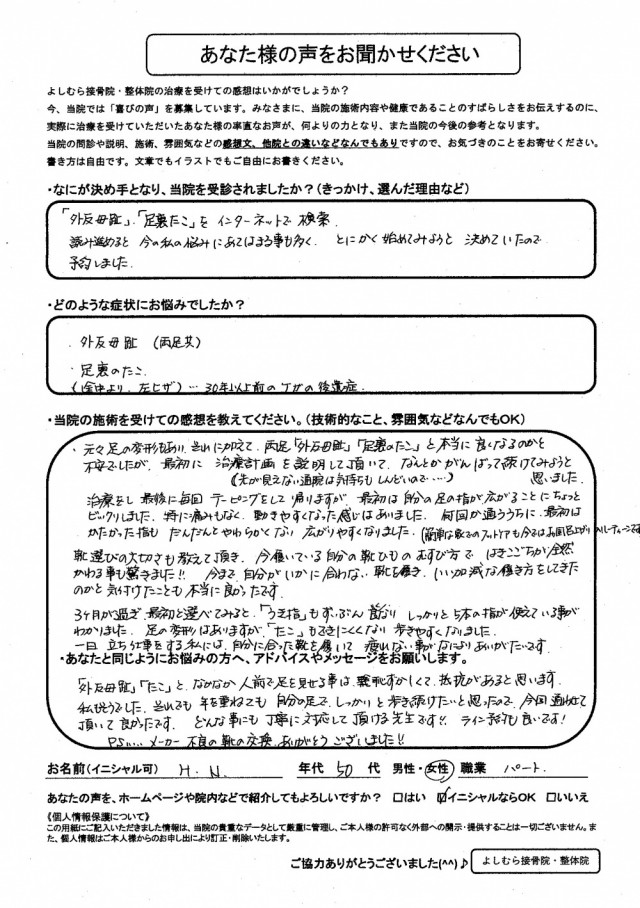 あなた様の声をお聞かせください
よしむら接骨院・整体院の治療を受けての感想はいかがでしょうか？
今、当院では「喜びの声」を募集しています。みなさまに、当院の施術内容や健康であることのすばらしさをお伝えするのに、
実際に治療を受けていただいたあなた様の率直なお声が、何よりの力となり、また当院の今後の参考となります。
当院の問診や説明、施術、雰囲気などの感想文、他院との違いなどなんでもありですので、お気づきのことをお寄せください。
書き方は自由です。文章でもイラストでもご自由にお書きください。
・なにが決め手となり、当院を受診されましたか？（きっかけ、選んだ理由など）
「外反母趾」、「足裏たこ」を インターネットで 検索
読み進めると 今の私の悩みにあてはまる事も多く、 とにかく始めてみようと 決めていたので
予約しました.
・どのような症状にお悩みでしたか？
・外反母趾 （両足共）
・足裏のたこ
（途中より、左ヒザ）… 30年以上前のケガの後遺症.
・当院の施術を受けての感想を教えてください。（技術的なこと、雰囲気などなんでもOK）
・元々足の変形もあり、それに加えて、両足「外反母趾」「足裏のたこ」と本当に良くなるのかと
不安でしたが、最初に 治療計画を説明して頂いて、なんとかがんばって続けてみようと
（先が見えない通院は気持ちもしんどいので…） 思いました.
治療をし 最後に毎回 テーピングをして帰りますが、最初は自分の足の指が広がることにちょっと
ビックリしました. 特に痛みもなく、動きやすくなった感じはありました. 何回か通ううちに、最初は
かたかった指も だんだんとやわらかくなり 広がりやすくなりました.
靴選びの大切さも教えて頂き、今履いている自分の靴ひもの むすび方で はきごこちが全然
かわる事も驚きました!! 今まで 自分がいかに合わない 靴を履き、いい加減な履き方をしてきた
のかと 気付けたことも 本当に良かったです.
3ヶ月が過ぎ 最初と比べてみると、「うき指」もずいぶん 良くなり しっかりと 5本の指が使えている事が
わかりました. 足の変形はありますが、「たこ」もできにくくなり 歩きやすくなりました.
一日 立ち仕事をする私には、自分に合った靴を履いて 疲れない事がなによりありがたいです.
・あなたと同じようにお悩みの方へ、アドバイスやメッセージをお願いします。
「外反母趾」「たこ」と、なかなか人前で足を見せる事は 恥ずかしくて、抵抗があると思います.
私もそうでした. それでも 年を重ねても 自分の足で、しっかりと歩き続けたいと思ったので、今回通わせて
頂いて 良かったです. どんな事にも 丁寧に対応して頂ける先生です!! ライン予約も良いです!
P.S…… メーカー 不良の靴の交換、ありがとうございました!!
お名前（イニシャル可） H.N. 年代 50 代 男性・女性 職業 パート.
あなたの声を、ホームページや院内などで紹介してもよろしいですか？ □はい ☑イニシャルならOK □いいえ
《個人情報保護について》
この用紙にご記入いただきました情報は、当院の貴重なデータとして厳重に管理し、ご本人様の許可なく外部への開示・提供することは一切ございません。ま
た、個人情報はご本人様からのお申し出により訂正・削除いたします。
ご協力ありがとうございました(^^)♪ よしむら接骨院・整体院